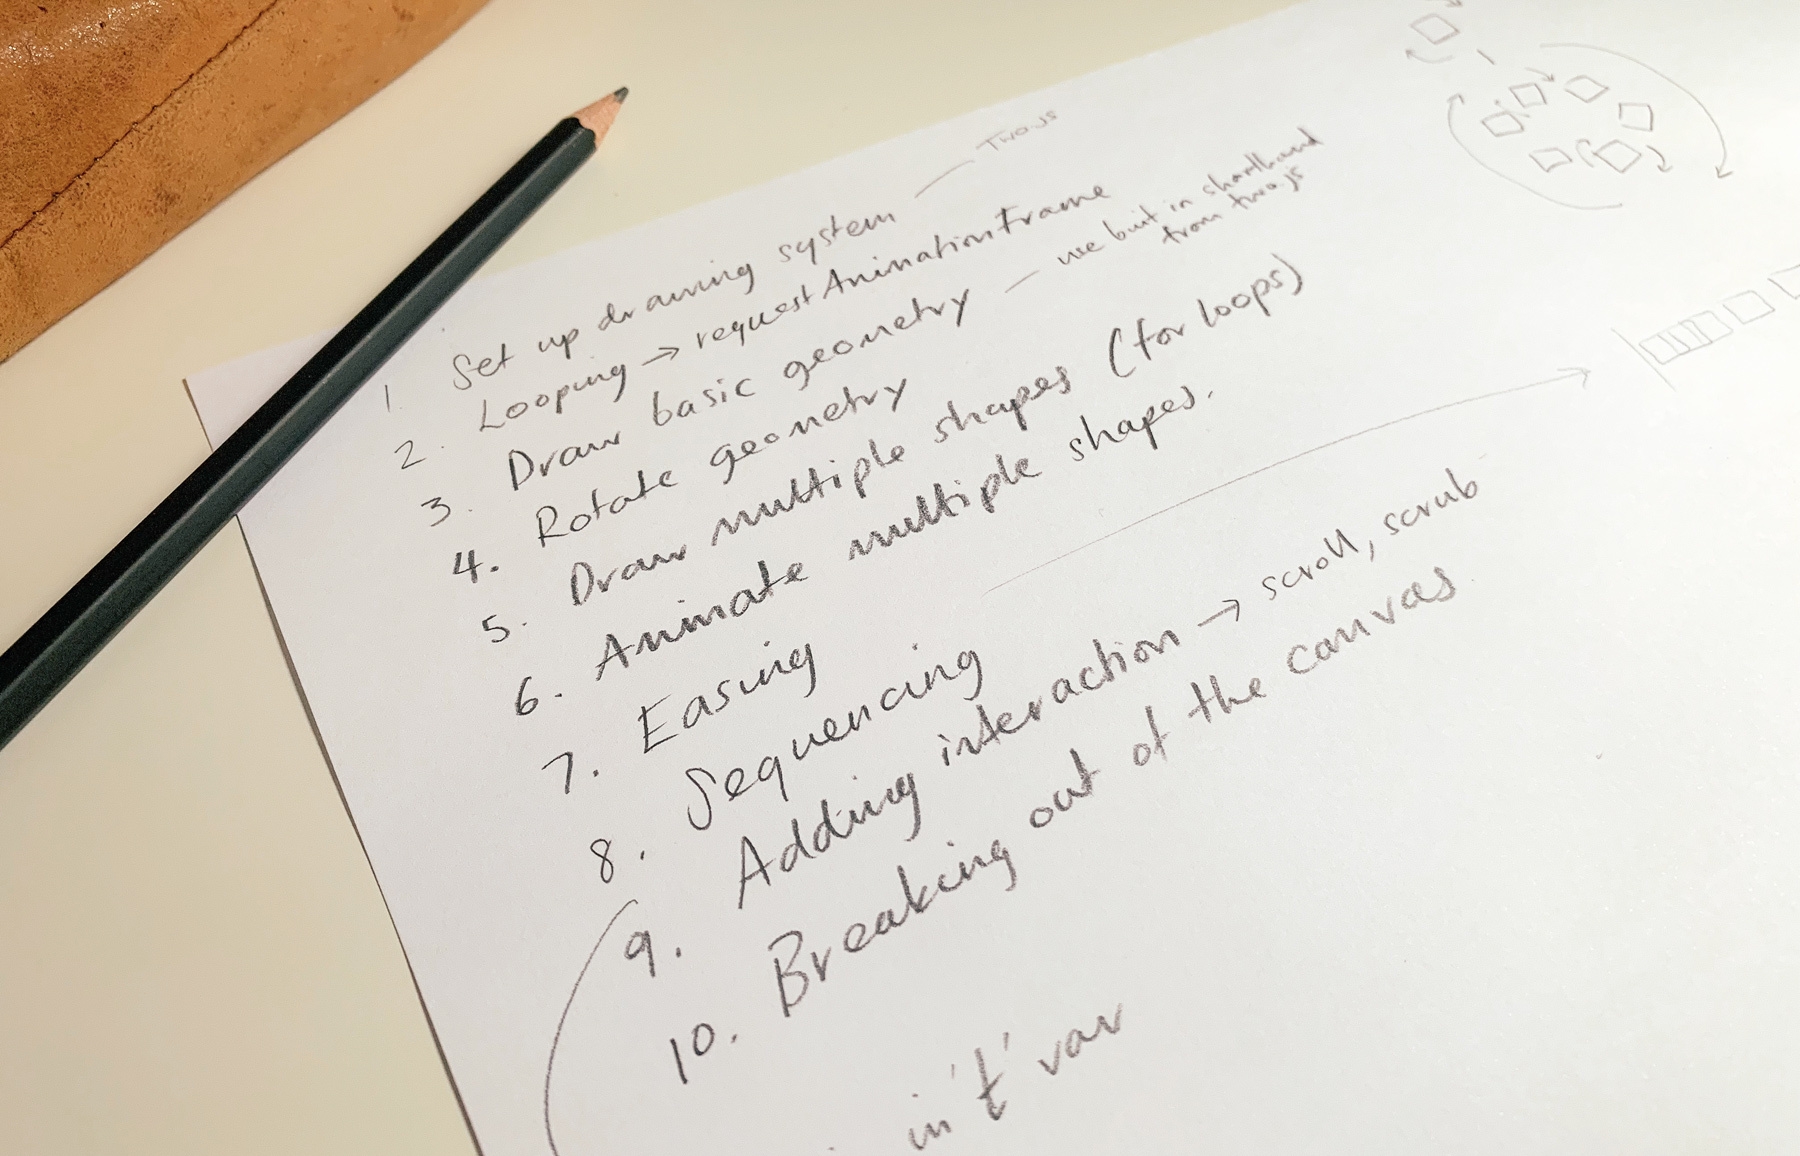 1. Set up drawing system — Two.js
2. Looping → requestAnimationFrame
3. Draw basic geometry — use built in shorthand
from two.js
4. Rotate geometry
5. Draw multiple shapes (for loops)
6. Animate multiple shapes.
7. Easing
8. Sequencing
9. Adding interaction → scroll, scrub
10. Breaking out of the canvas
in 't' var